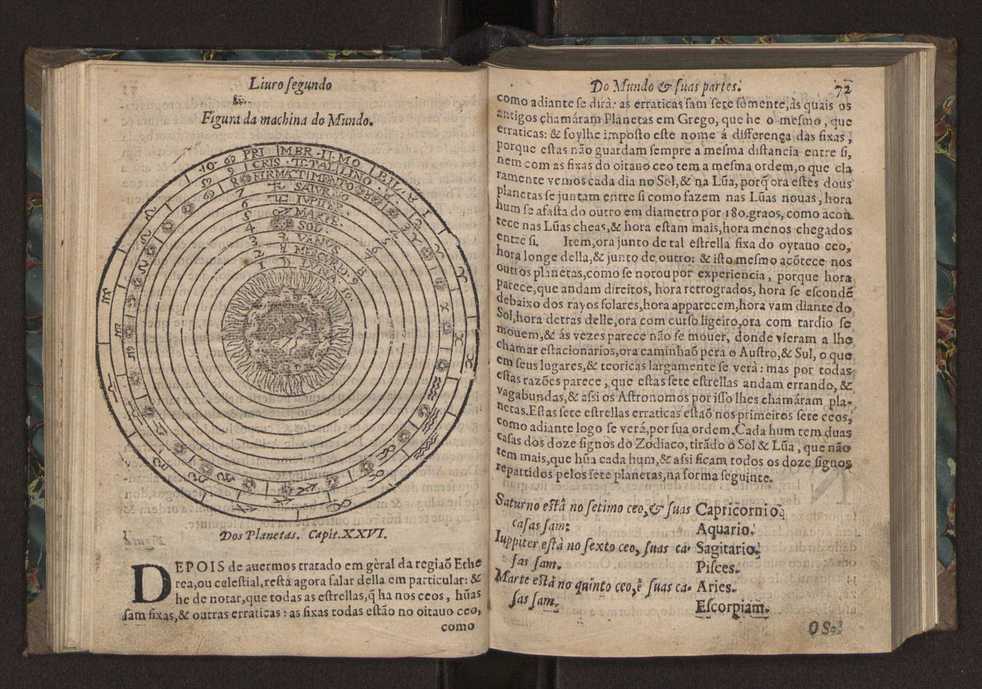 Liuro segundo
Figura da machina do Mundo.
PRI MER II MO BIL
CRIS TAL LINO
FIRMA TIMENTO
7 SATVRNO
6 IVPITER
5 MARTE
4 SOL
3 VANOS
2 MERCVRI
1 LVNA
Dos Planetas. Capit. XXVI.
DEPOIS de auermos tratado em gèral da regiaõ Ethe
rea, ou celestial, resta agora falar della em particular: &
he de notar, que todas as estrellas, q̃ ha nos ceos, hũas
sam fixas, & outras erraticas: as fixas todas estão no oitauo ceo,
como
Do Mundo & suas partes. 72
como adiante se dirà: as erraticas sam sete sòmente, às quais os
antigos chamàram Planetas em Grego, que he o mesmo, que
erraticas: & foylhe imposto este nome á differença das fixas,
porque estas não guardam sempre a mesma distancia entre si,
nem com as fixas do oitauo ceo tem a mesma ordem, o que cla
ramente vemos cada dia no Sol, & na Lũa, porq̃ ora estes dous
planetas se juntam entre si como fazem nas Lũas nouas, hora
hum se afasta do outro em diametro por 180. graos, como acon
tece nas Lũas cheas, & hora estam mais, hora menos chegados
entre si. Item, ora junto de tal estrella fixa do oytauo ceo,
hora longe della, & junto de outro: & isto mesmo acõtece nos
outros planetas, como se notou por experiencia, porque hora
parece, que andam direitos, hora retrogrados, hora se escondẽ
debaixo dos rayos solares, hora apparecem, hora vam diante do
Sol, hora detras delle, ora com curso ligeiro, ora com tardio se
mouem, & ás vezes parece não se mouer, donde vieram a lhe
chamar estacionarios, ora caminhaõ pera o Austro, & Sul, o que
em seus lugares, & teoricas largamente se verà: mas por todas
estas razões parece, que estas sete estrellas andam errando, &
vagabundas, & assi os Astronomos por isso lhes chamáram pla-
netas. Estas sete estrellas erraticas estaõ nos primeiros sete ceos,
como adiante logo se verá, por sua ordem. Cada hum tem duas
casas dos doze signos do Zodiaco, tirãdo o Sol & Lũa, que não
tem mais, que hũa cada hum, & assi ficam todos os doze signos
repartidos pelos sete planetas, na forma seguinte.
Saturno està no setimo ceo, & suas Capricornio
casas sam: Aquario.
Iuppiter està no sexto ceo, suas ca- Sagitario.
sas sam. Pisces.
Marte està no quinto ceo, & suas ca- Aries.
sas sam. Escorpiam.
OS